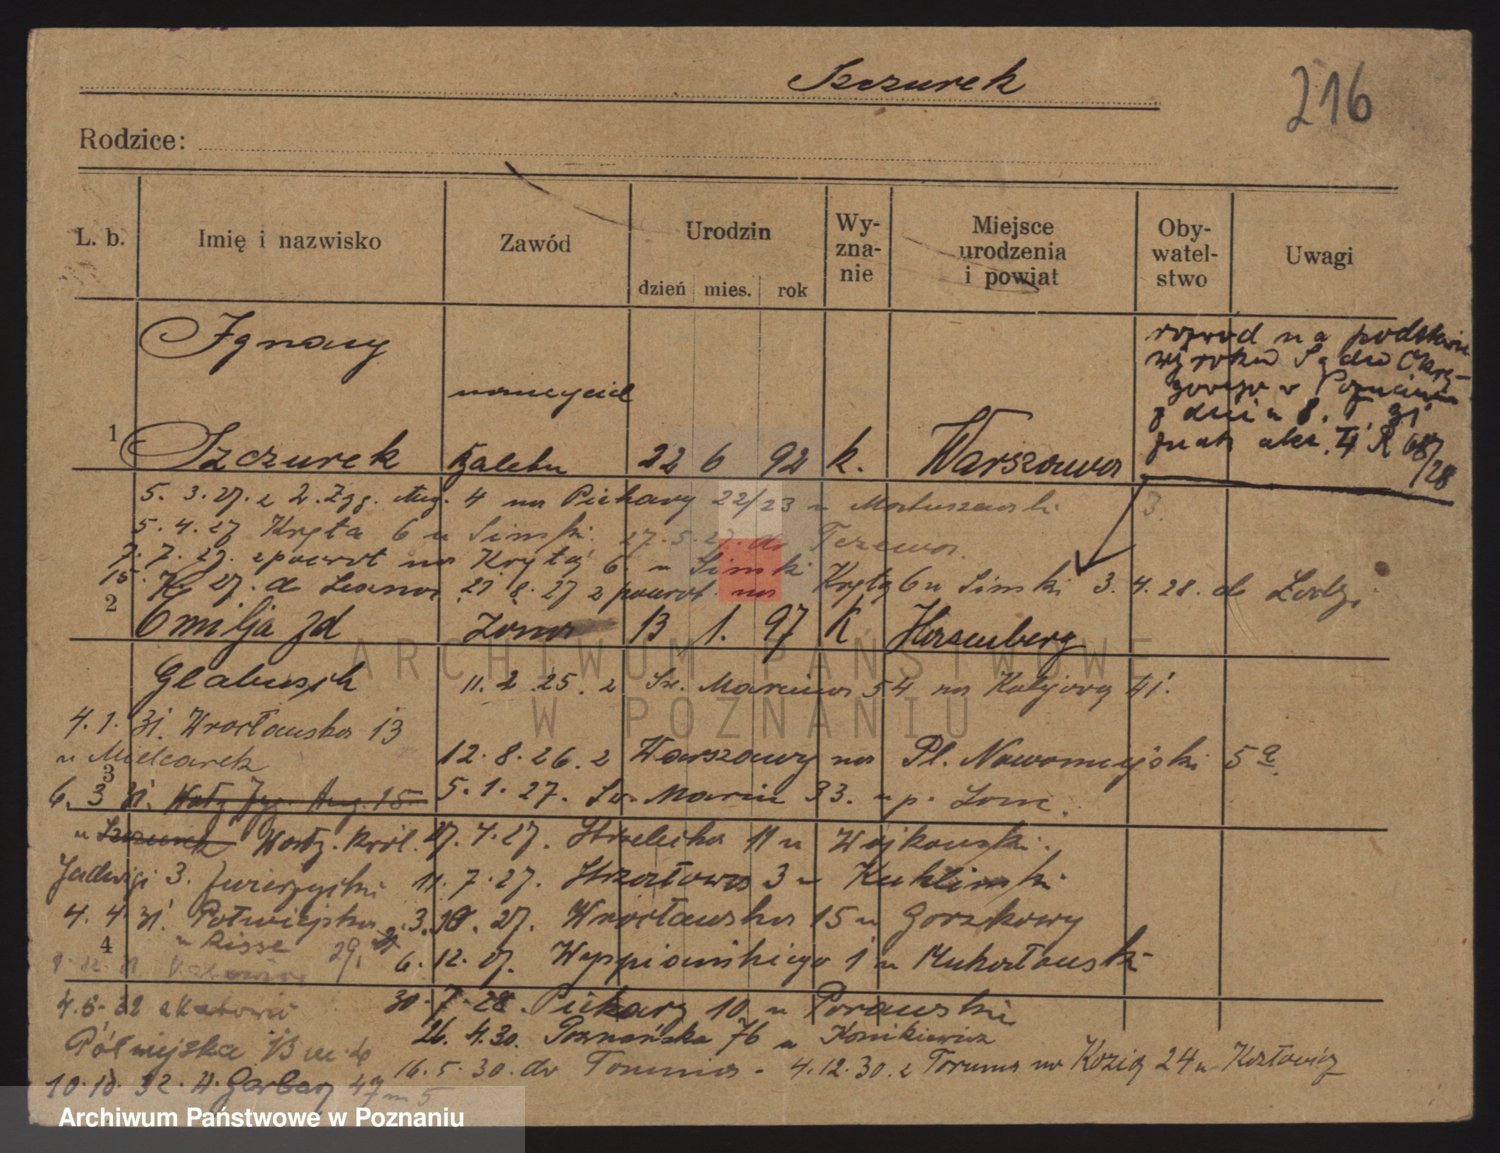 Szczurek
216
Rodzice:
L. b.
Imię i nazwisko
Zawód
Urodzin
dzień mies. rok
Wy-
zna-
nie
Miejsce
urodzenia
i powiat
Oby-
watel-
stwo
Uwagi
Ignacy
nauczyciel
rozwód na podstawie
wyroku Sądu Okrę-
gowego w Poznaniu
z dnia 8. 1. 31
znak akt. 4 R 68/28
1 Szczurek baletu 22 6 92 k. Warszawa
5. 3. 27. z 2. Zyg. Aug. 4 na Piekary 22/23 u Martuszewski
3.
5. 4. 27 Kręta 6 u Simski. 27. 5. 27. do Tczewa.
7. 7. 27. zpowrot na Krętą 6. u Simski
15. 27. do Leszna 21 8. 27 z powrot na Kręta 6 u Simski 3. 4. 28. do Łodzi
2 Emilja zd żona 13 1. 97 K Herzenberg
ARCHIWUM PAŃSTWOWE
W POZNANIU
Glabusch
11. 2. 25. z Św. Marcina 54 na Kolejową 41.
4. 1. 31. Wrocławska 13
u Mielcarek
12. 8. 26. z Warszawy na Pl. Nowomiejski 5a
3
6. 3 31. Wały Zyg. Aug. 15
5. 1. 27. Św. Marcin 33. u p.
u Szczurek Wały. Król.
27. 4. 27. Strzelecka 11 u Wojkowski.
Jadwigi 3. Zwierzycki
11. 7. 27. Strzałowa 3 u Kuklinski
4. 4. 31. Półwiejska
3. 10. 27. Wrocławska 15 u Gorzkowy
u Risse 29,
4
6. 12. 27. Wyspiańskiego 1 u
4. 6. 32 z Katowic
30. 7. 28. Piekary 10 u Porawski
26. 4. 30. Poznańska 76 u Konikiewicz
Półwiejska
16. 5. 30. do Torunia - 4. 12. 30. z Torunia na Kozią 24 u Kozłowicz
10. 10. 32. W. Garbary 47 m 5
Archiwum Państwowe w Poznaniu